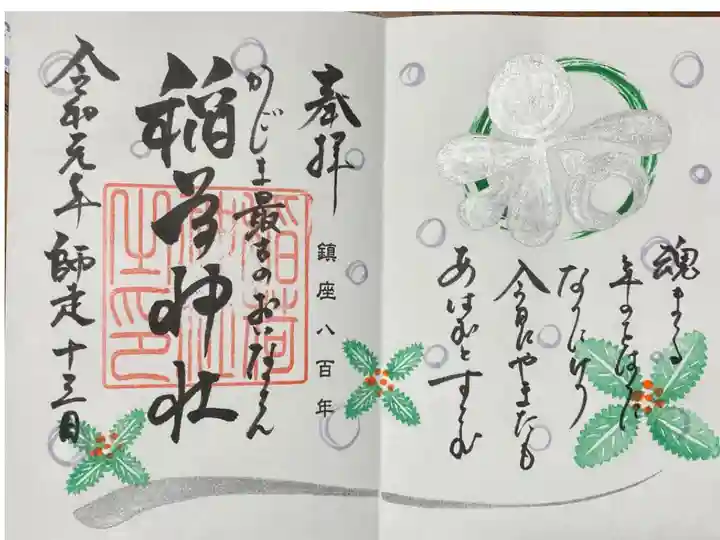 魂まつる
年のをはりに
なりにけり
今日にやまたも
あはむとすらむ
奉拝
鎮座八百年
かじま最古のおいなりさん
稲荷神社
稲荷神社之印
令和元年 師走 十三日